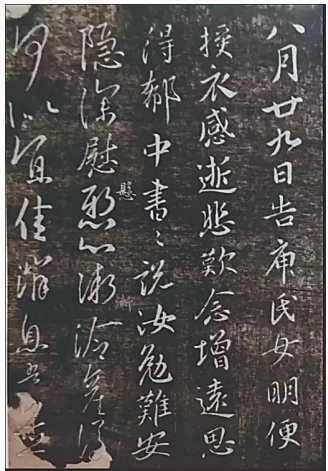 八月廿九日告庾氏女明便
授衣感逝悲歎念增遠思
得郗中書〻說汝勉難安
隱深慰懸心漸冷產後
懸
何似宜佳消息吾並